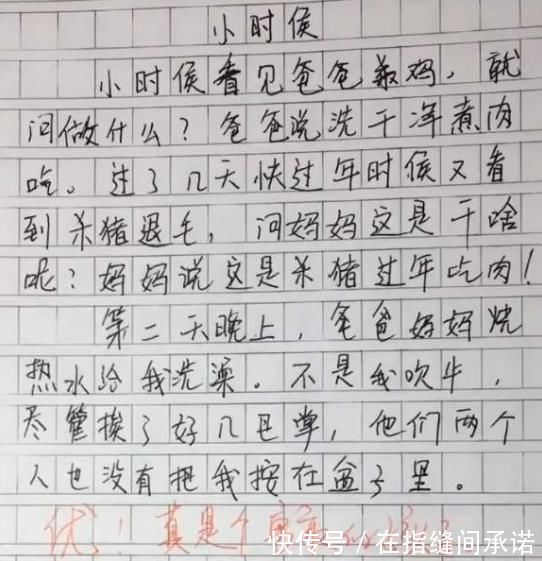 小时侯
小时侯看见爸爸鸡，就
问做什么？爸爸说洗干净煮肉
吃。过了几天快过年时侯又看
到杀猪退毛，问妈妈这是干啥
呢？妈妈说这是杀猪过年吃肉！
第二天晚上，爸爸妈妈烧
热水给我洗澡。不是我吹牛，
尽管挨了好几巴掌，他们两个
人也没有把我按在盆子里。
优！真是个
快传号/在指缝间承诺